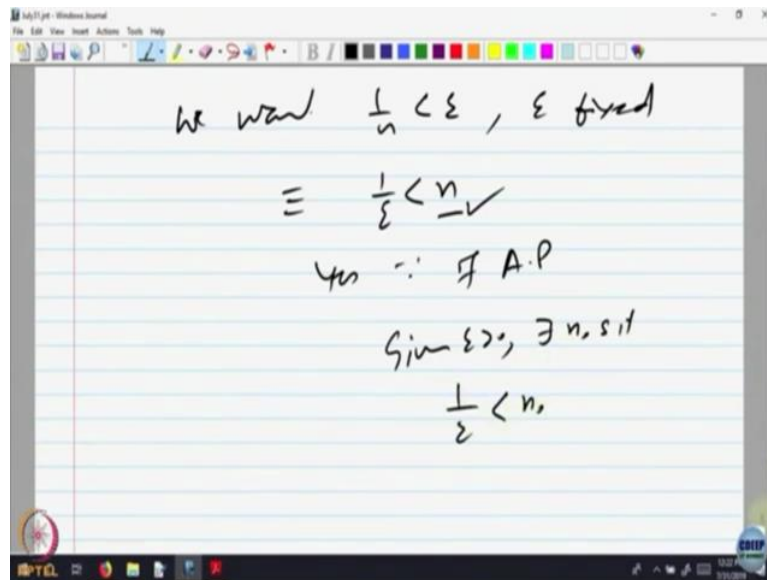 July31.jnt - Windows Journal
File Edit View Insert Actions Tools Help
We want 1/n < ε, ε fixed
≡ 1/ε < n ✓
Yes ∵ of A.P
Given ε>0, ∃ n₀ s.t
1/ε < n₀
NPTEL
CDEEP